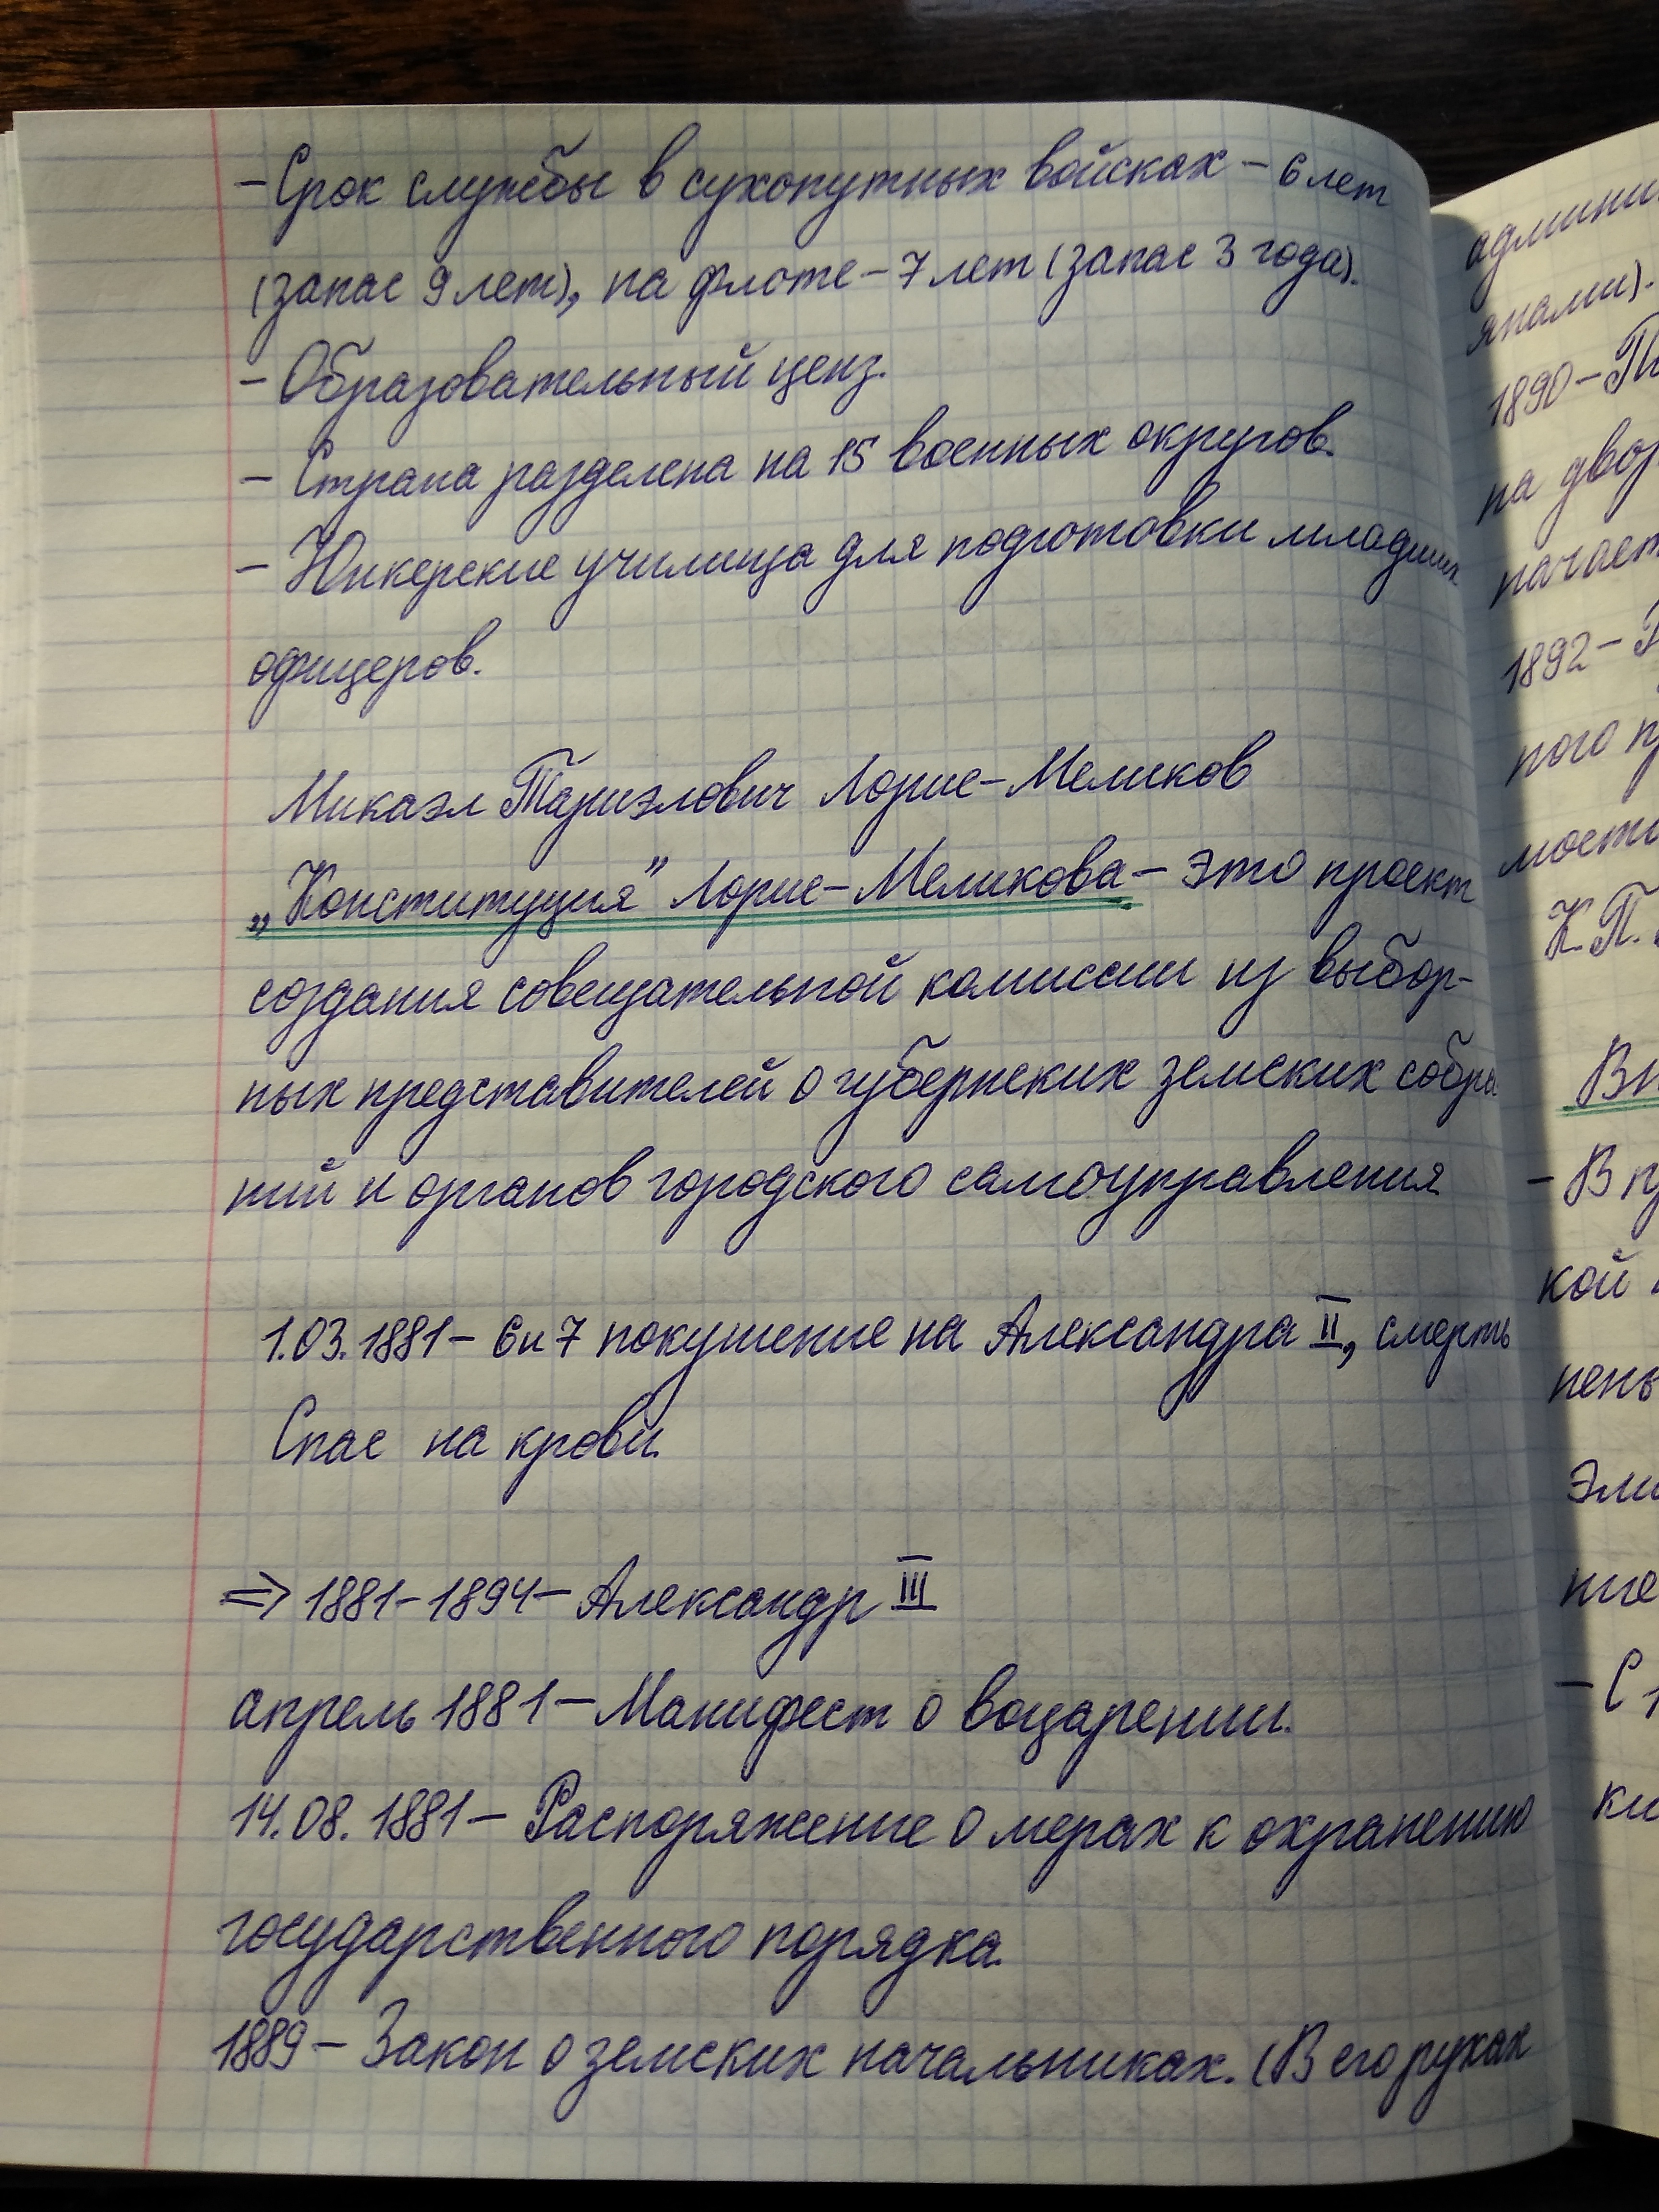 - Срок службы в сухопутных войсках - 6 лет
(запас 9 лет), на флоте - 7 лет (запас 3 года).
- Образовательный ценз.
- Страна разделена на 15 военных округов.
- Юнкерские училища для подготовки младших
офицеров.
Микаэл Тариэлович Лорис-Меликов
„Конституция" Лорис-Меликова - это проект
создания совещательной комиссии из выбор-
ных представителей о губернских земских собра
ний и органов городского самоуправления
1.03.1881 - 6 и 7 покушение на Александра II, смерть
Спас на крови.
⇒ 1881-1894 - Александр III
апрель 1881 - Манифест о воцарении.
14.08.1881 - Распоряжение о мерах к охранению
государственного порядка.
1889 - Закон о земских начальниках. (В его руках
админи
янами).
1890 - П
на двор
начает
1892 -
ного п
мости
К.П.
Вн
- В п
кой
пень
эли
ние
- С
ки